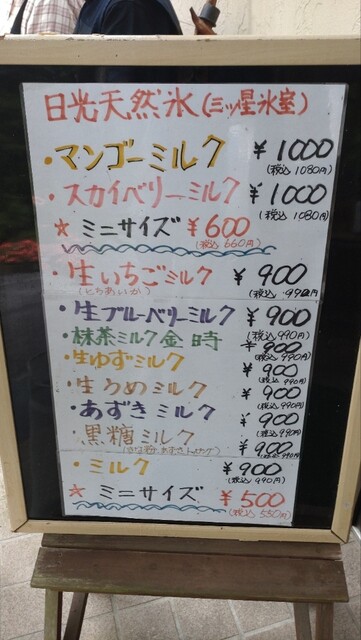 日光天然氷(三ッ星氷室)
・マンゴーミルク ¥1000
(税込 1080円)
・スカイベリーミルク ¥1000
(税込 1080円)
☆ミニサイズ ¥600
(税込 660円)
・生いちごミルク ¥900
(とちあいか) (税込 990円)
・生ブルーベリーミルク ¥900
(税込 990円)
・抹茶ミルク金時 ¥900
(税込 990円)
・生ゆずミルク ¥900
(税込 990円)
・生うめミルク ¥900
(税込 990円)
・あずきミルク ¥900
(税込 990円)
・黒糖ミルク ¥900
・ミルク ¥900
(税込 990円)
☆ミニサイズ ¥500
(税込 550円)